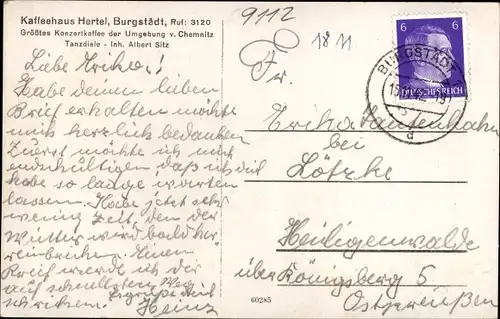 Kaffeehaus Hertel, Burgstädt, Ruf: 3120
Größtes Konzertkaffee der Umgebung v. Chemnitz
Tanzdiele - Inh. Albert Sitz
9112
1811
6 6
DEUTSCHES REICH
BURGSTÄDT
d
Liebe Erika!
Habe deinen lieben
Brief erhalten möchte
mich herzlich bedanken
Zuerst möchte ich mich
endschultigen, daß ich dich
habe so lange warten
lassen. Habe jetzt sehr
wenig Zeit, den der
Winter wird bald her-
reinbrechen. Einen
Brief werde ich dir
auf schnellsten Weg
schreiben. Es grüßt dich
Heinz
Fr.
Erika Lautenhahn
bei
Lötzke
Heiligenwalde
über Königsberg 5
Ostpreußen
60285